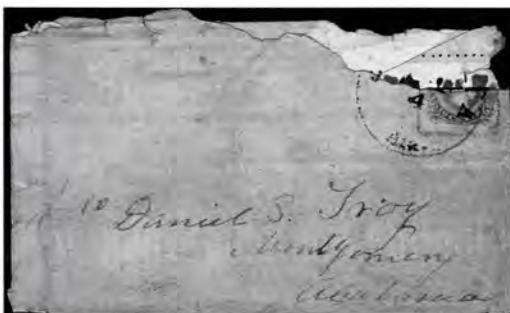 to Daniel S. Troy
Montgomery
Alabama